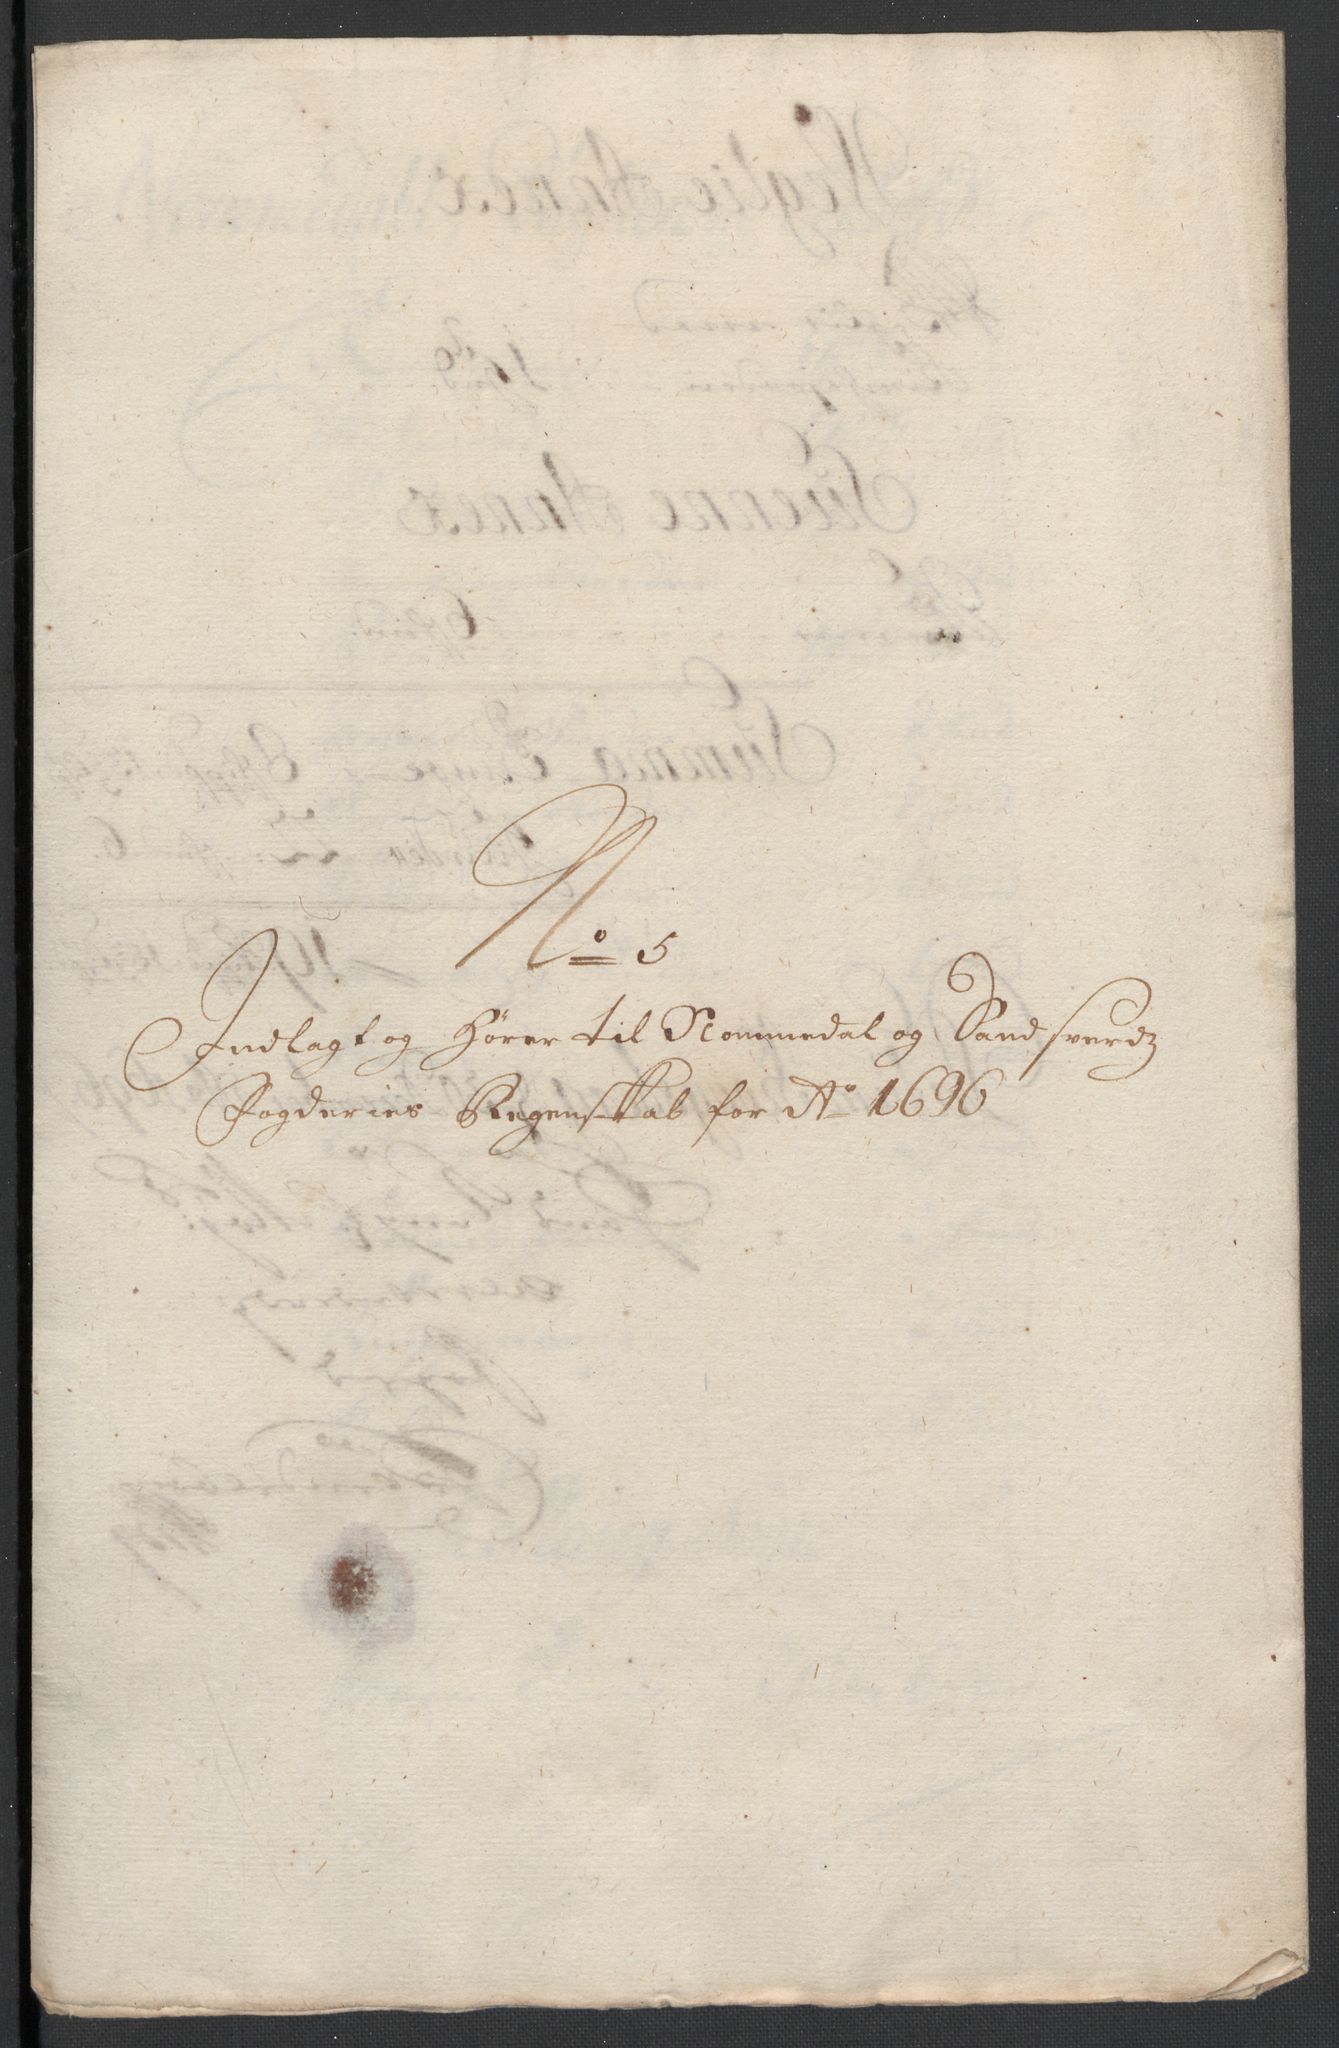 No 5
Indlagt og hører til Nommedal og Sandsverdz
Fogderies Regenskab for Ao 1696